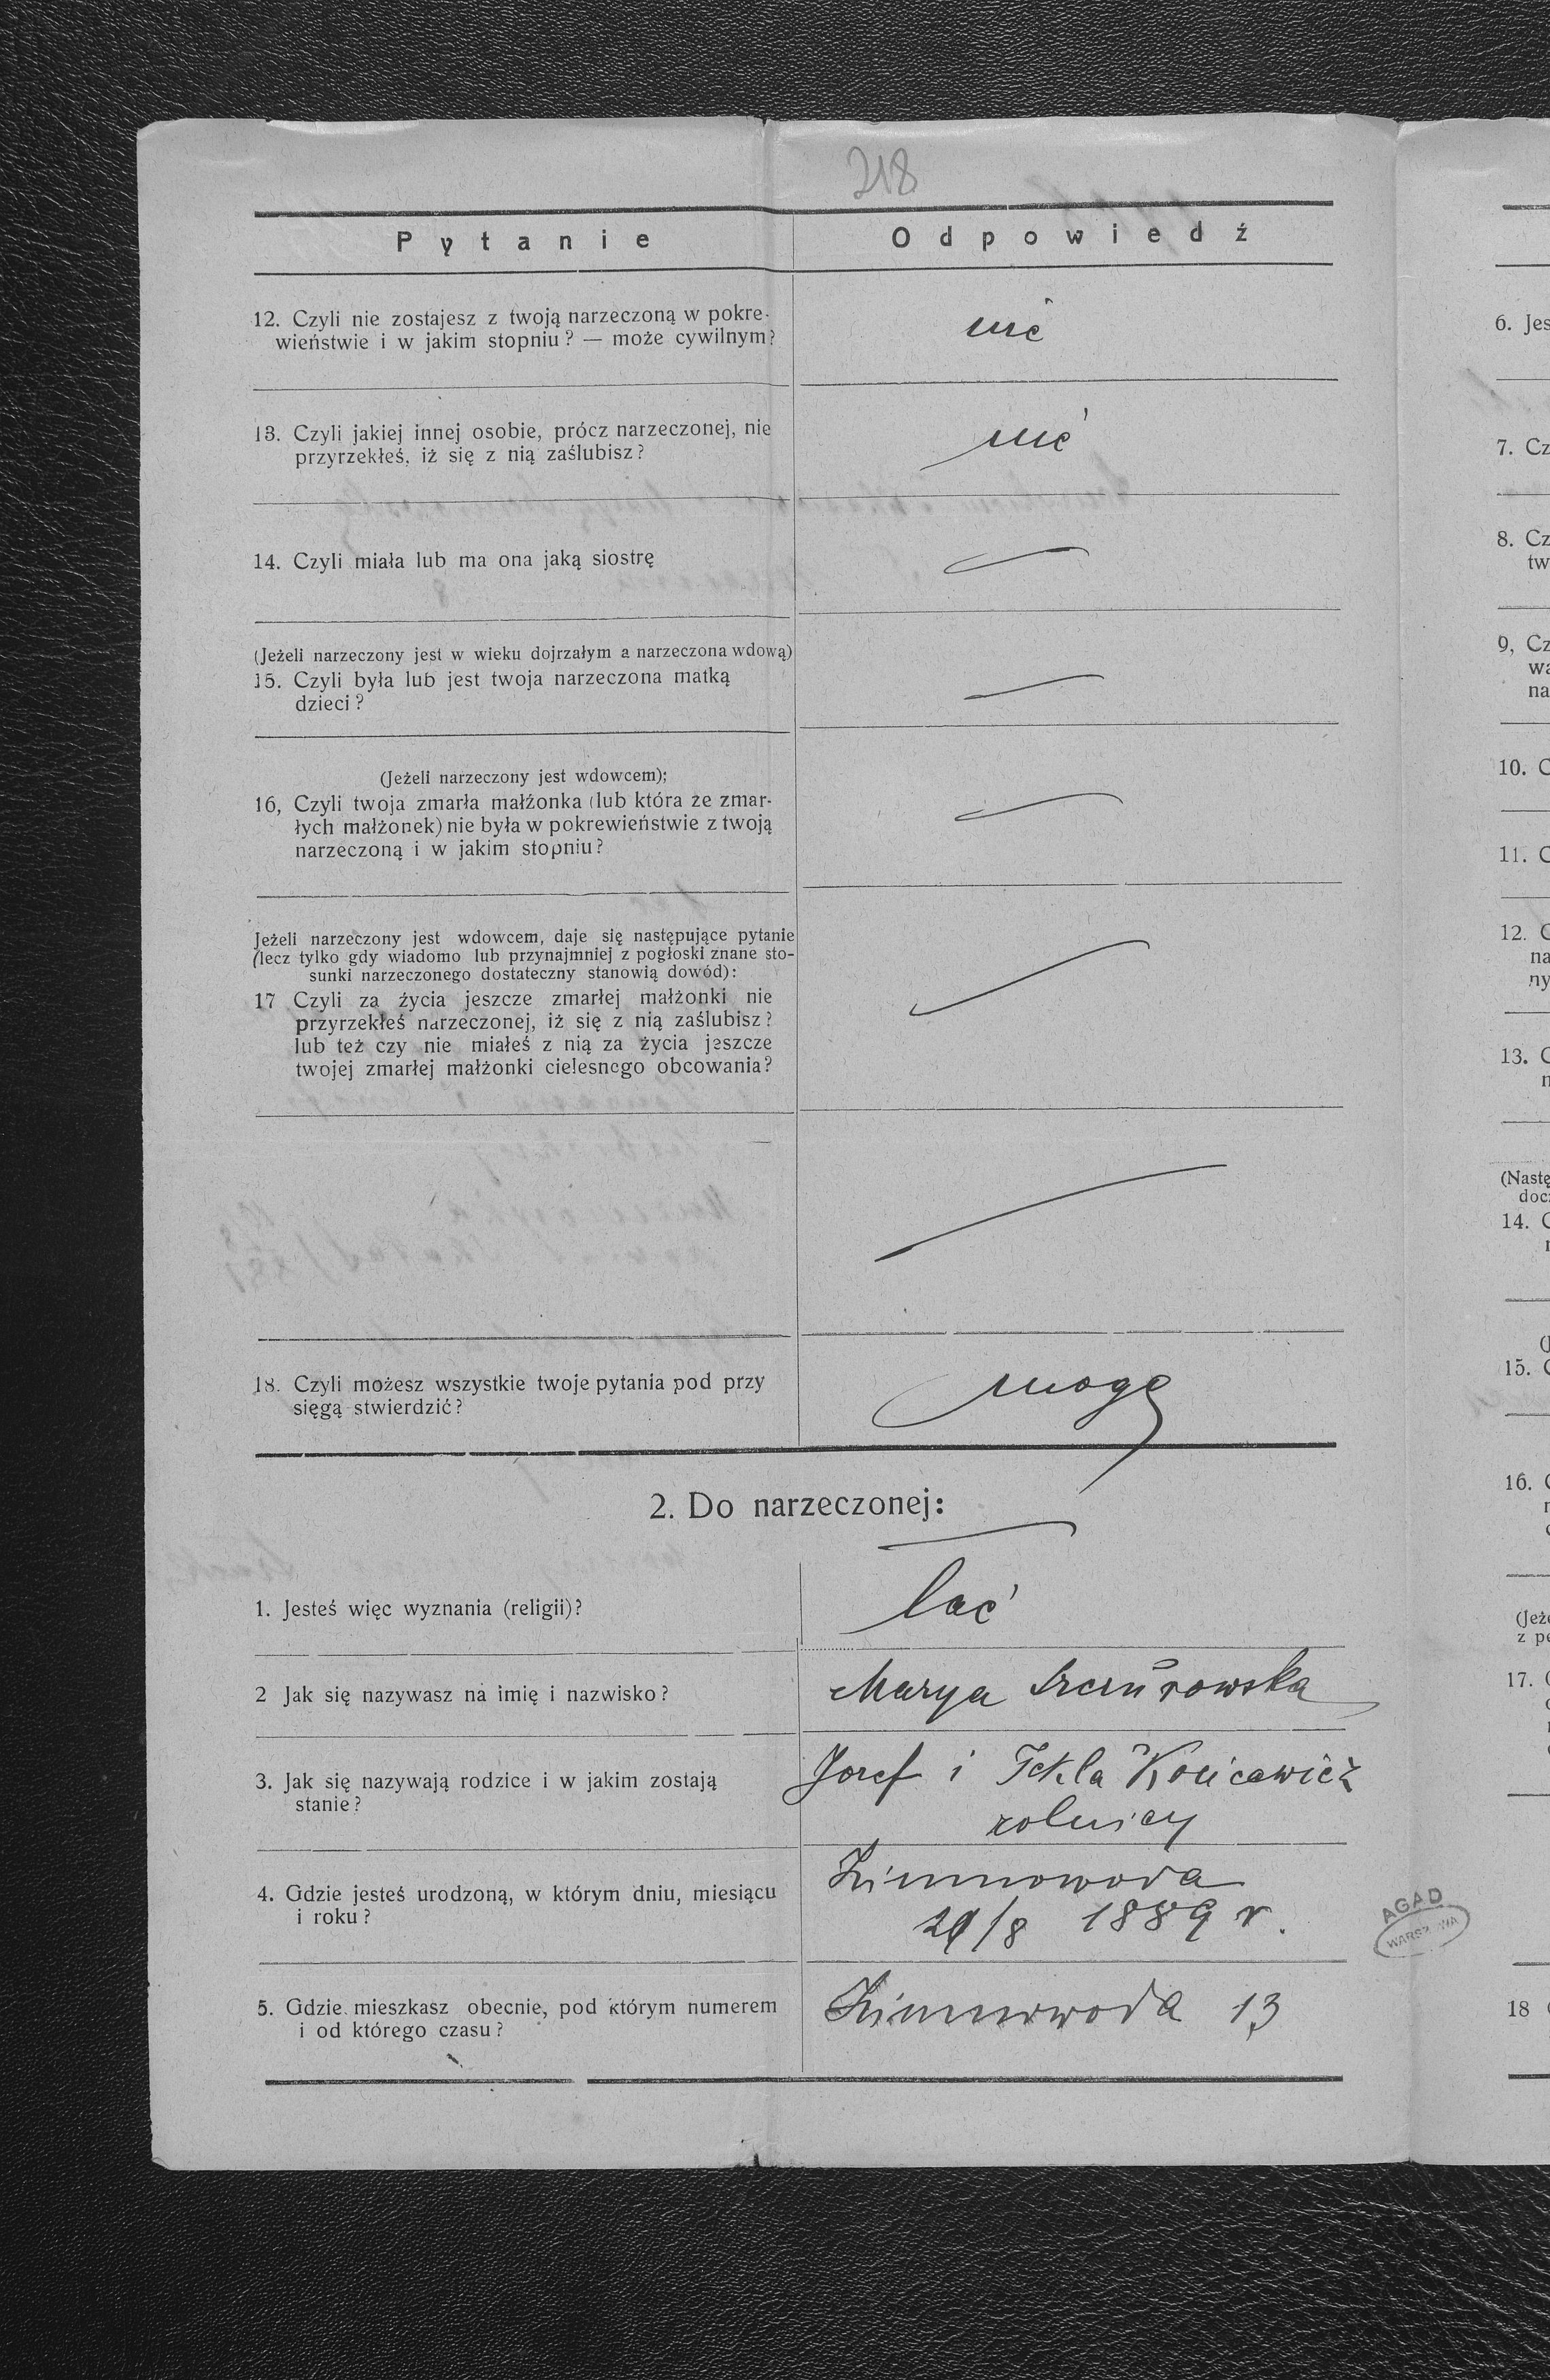 218
Pytanie
Odpowiedź
12. Czyli nie zostajesz z twoją narzeczoną w pokre-
wieństwie i w jakim stopniu? — może cywilnym?
nie
13. Czyli jakiej innej osobie, prócz narzeczonej, nie
przyrzekłeś, iż się z nią zaślubisz?
nie
14. Czyli miała lub ma ona jaką siostrę
(Jeżeli narzeczony jest w wieku dojrzałym a narzeczona wdową)
15. Czyli była lub jest twoja narzeczona matką
dzieci?
(Jeżeli narzeczony jest wdowcem);
16, Czyli twoja zmarła małżonka (lub która ze zmar-
łych małżonek) nie była w pokrewieństwie z twoją
narzeczoną i w jakim stopniu?
Jeżeli narzeczony jest wdowcem, daje się następujące pytanie
(lecz tylko gdy wiadomo lub przynajmniej z pogłoski znane sto-
sunki narzeczonego dostateczny stanowią dowód):
17 Czyli za życia jeszcze zmarłej małżonki nie
przyrzekłeś narzeczonej, iż się z nią zaślubisz?
lub też czy nie miałeś z nią za życia jeszcze
twojej zmarłej małżonki cielesnego obcowania?
18. Czyli możesz wszystkie twoje pytania pod przy
sięgą stwierdzić?
mogę
2. Do narzeczonej:
1. Jesteś więc wyznania (religii)?
łać
2 Jak się nazywasz na imię i nazwisko?
Marya
3. Jak się nazywają rodzice i w jakim zostają
stanie?
Józef i Tekla
rolnicy
4. Gdzie jesteś urodzoną, w którym dniu, miesiącu
i roku?
Zimnowoda
/8 1889 r.
5. Gdzie mieszkasz obecnie, pod którym numerem
i od którego czasu?
Zimnowoda 13
AGAD
WARSZAWA
6. Jes
7. Cz
8. Cz
tw
9, Cz
wa
na
10. C
11. C
12. C
na
ny
13. C
(Nastę
doc
14. C
15. C
16. C
(Jeże
z pe
17. C
18